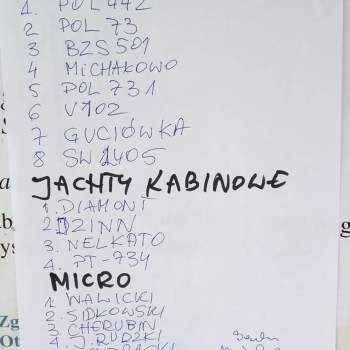 1. POL 442
2 POL 73
3 BZS 501
4 MICHAŁOWO
5 POL 731
6 V102
7 GUCIÓWKA
8 SW 2405
JACHTY KABINOWE
1. DIAMONT
2. DZINN
3. NELKATO
4. PT-734
MICRO
1. WAWICKI
2. SIDKOWSKI
3 CHERUBIN
4. J. RUDZKI